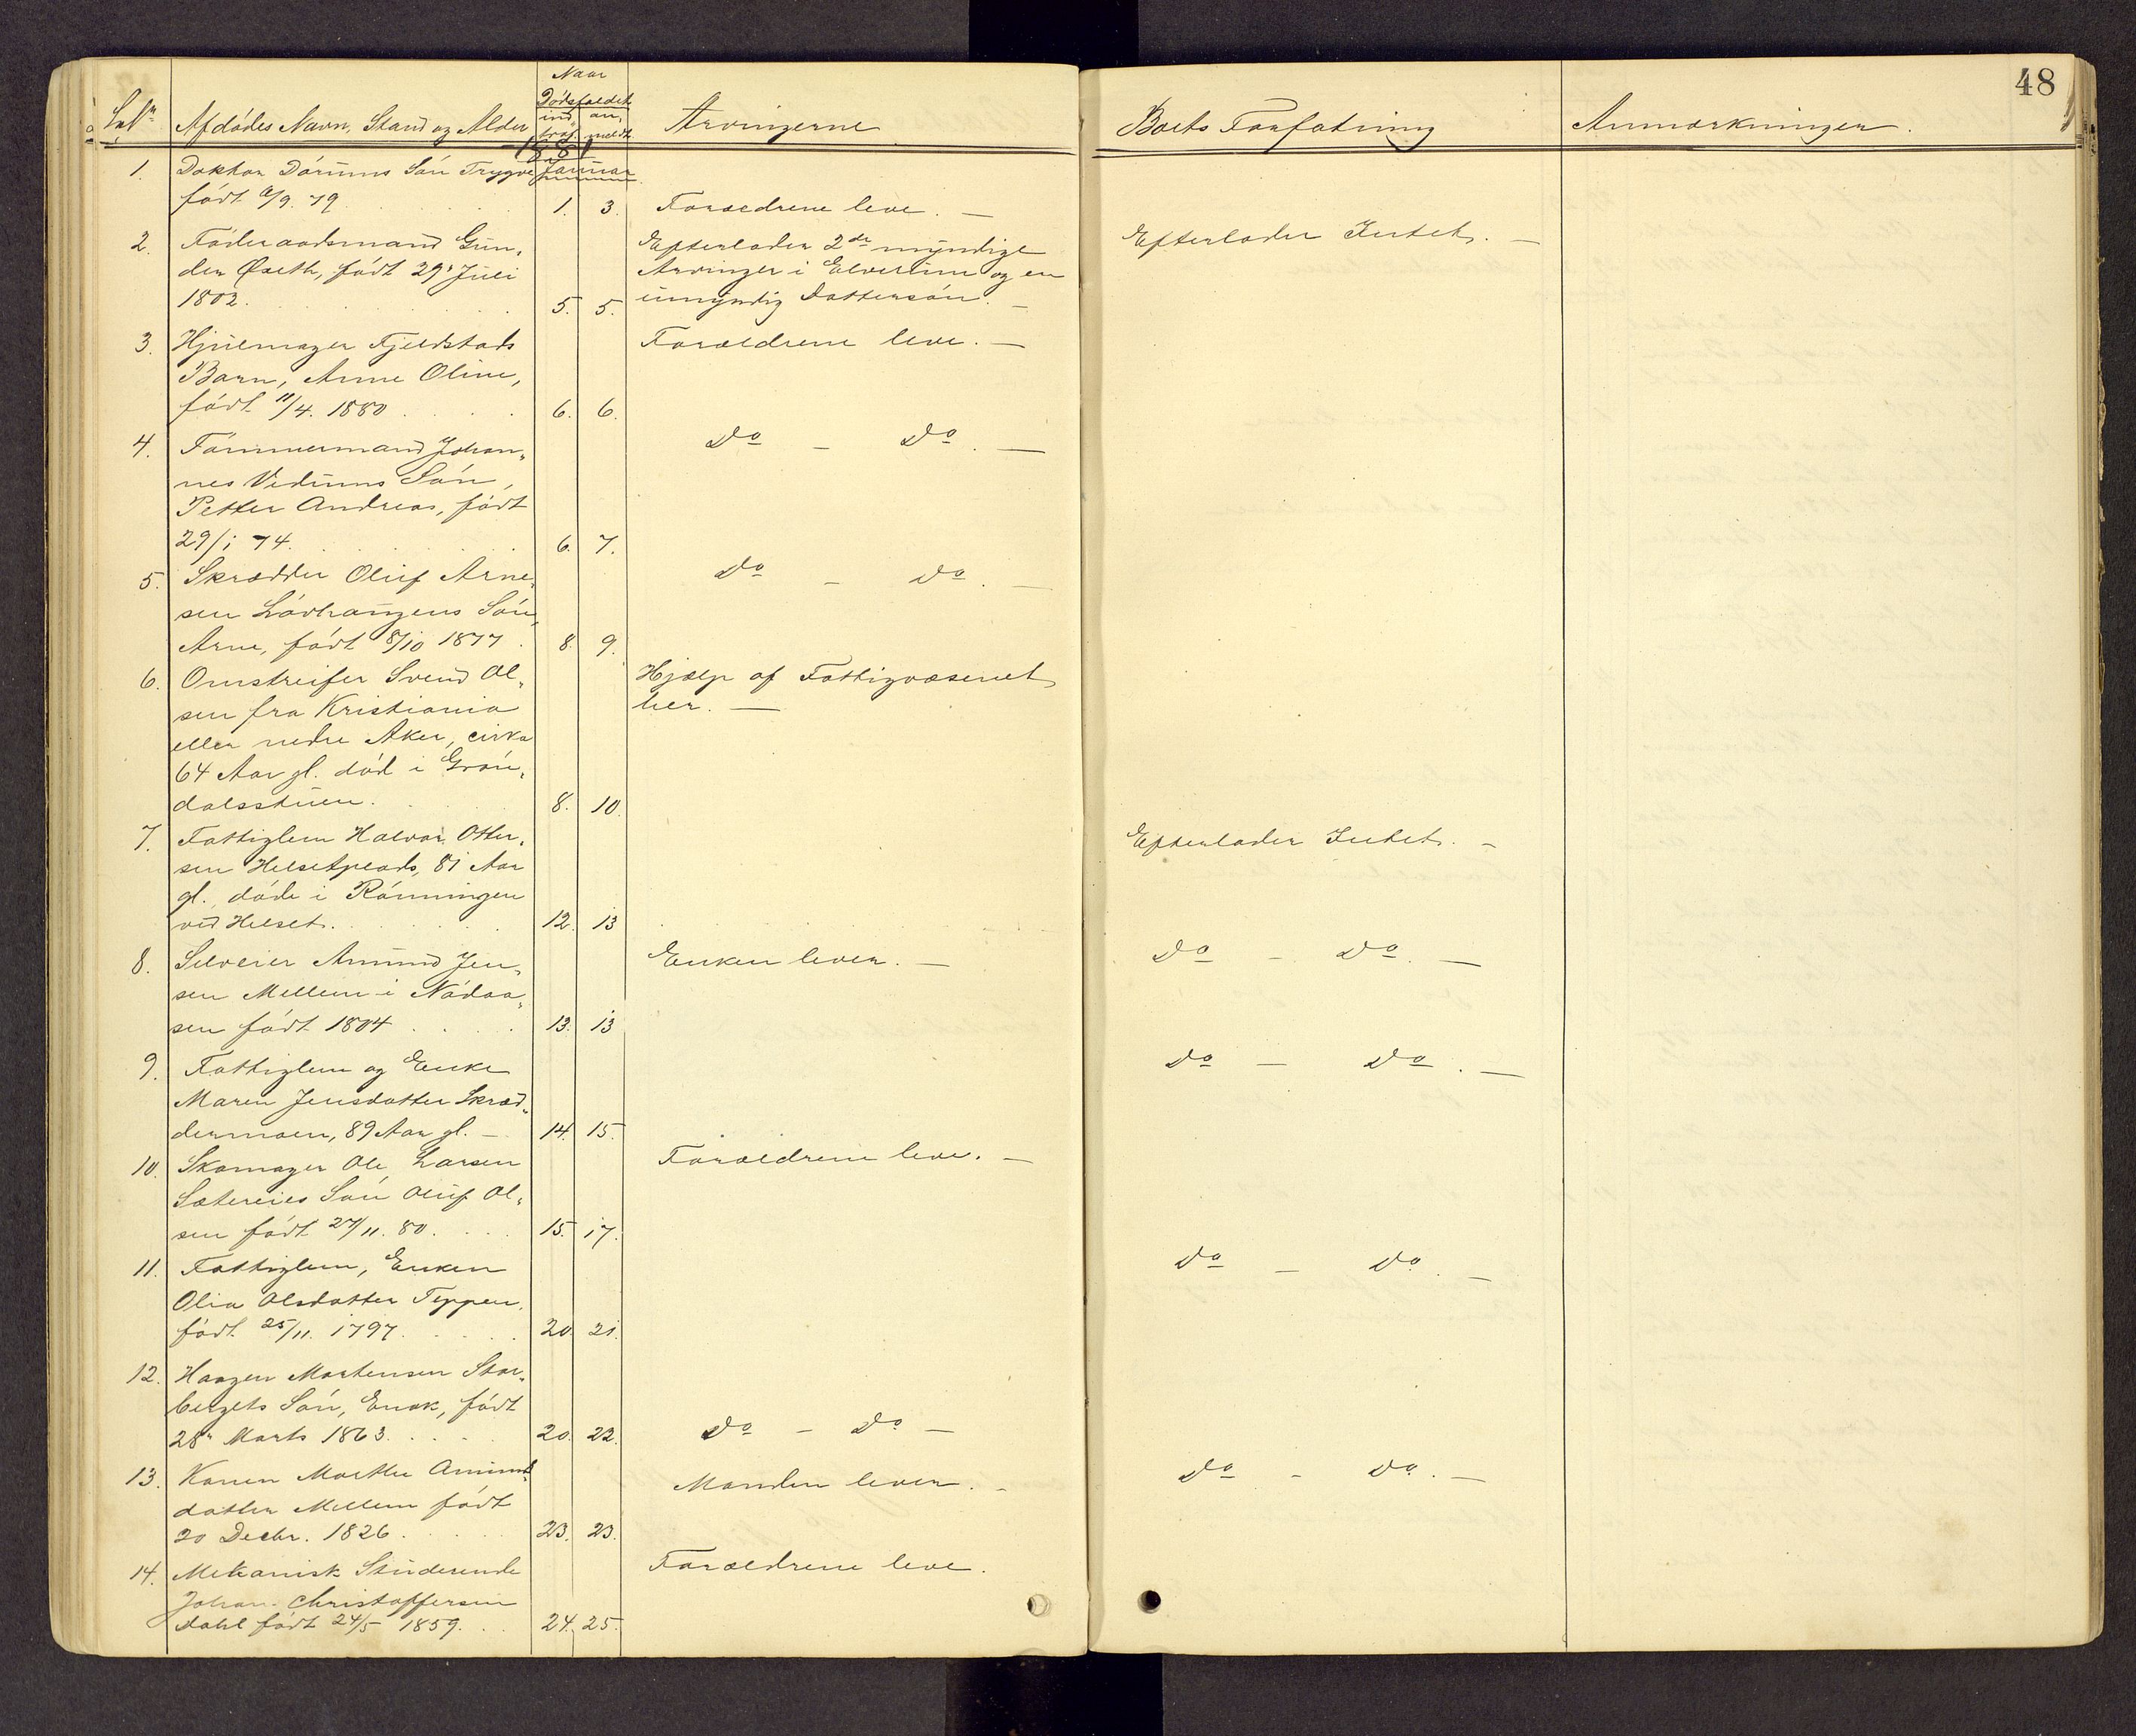 48
Naar
Dödsfaldet
Afdödes Navn, Stand og Alder
ind- an-
traf. meldt.
Arvingerne
Boets Forfatning
Anmærkninger.
1881
Januar
1. Doktor Dörums Sön Trygve
födt 9. 79 1. 3. Forældrene leve. —
2. Föderaadsmand Gun-
der Øseth, födt 29de Juli
1802. 5. 5.
Efterlader 2de myndige
Arvinger i Elverum og en
umyndig Dattersön. —
Efterlader Intet. —
3. Hjulmager Fjeldstads
Barn, Anne Oline,
födt 11/4. 1880 6. 6.
Forældrene leve. —
4. Tömmermand Johan-
nes Vidums Sön,
Petter Andreas, födt
29/1 74. 6. 7.
Do — Do. —
5. Skrædder Oluf Arne-
sen Lövhaugens Sön,
Arne, födt 8/10 1877. 8. 9.
Do — Do. —
6. Omstreifer Svend Ol-
sen fra Kristiania
eller nedre Aker, cirka
64 Aar gl. död i Grön-
dalsstuen. 8. 10.
Hjælp af Fattigvæsenet
her. —
7. Fattiglem Halvor Otter-
sen Helsetplads, 81 Aar
gl., döde i Rönningen
ved Helset. 12. 13
Efterlader Intet. —
8. Selveier Amund Jen-
sen Mellem i Nödaa-
sen födt 1804 13. 13
Enken lever. —
Do — Do. —
9. Fattiglem og Enke
Maren Jensdatter Skræd-
dermoen, 89 Aar gl. — 14. 15.
Do — Do. —
10. Skomager Ole Larsen
Sætereies Sön Oluf Ol-
sen födt 27/11. 80. 15. 17.
Forældrene leve. —
11. Fattiglem, Enken
Olia Olsdatter Teppen,
födt 25/11. 1797. 20. 21.
Do — Do. —
12. Haagen Mortensen Stor-
bergets Sön, Enok, födt
28de Marts 1863. 20. 22.
Do — Do —
13. Karen Marthe Amunds-
datter Mellem födt
20 Decbr. 1826. 23. 23.
Manden lever. —
Do — Do. —
14. Mekanisk Studerende
Johan Christoffersen
Dahl födt 24/5 1859. 24. 25.
Forældrene leve.